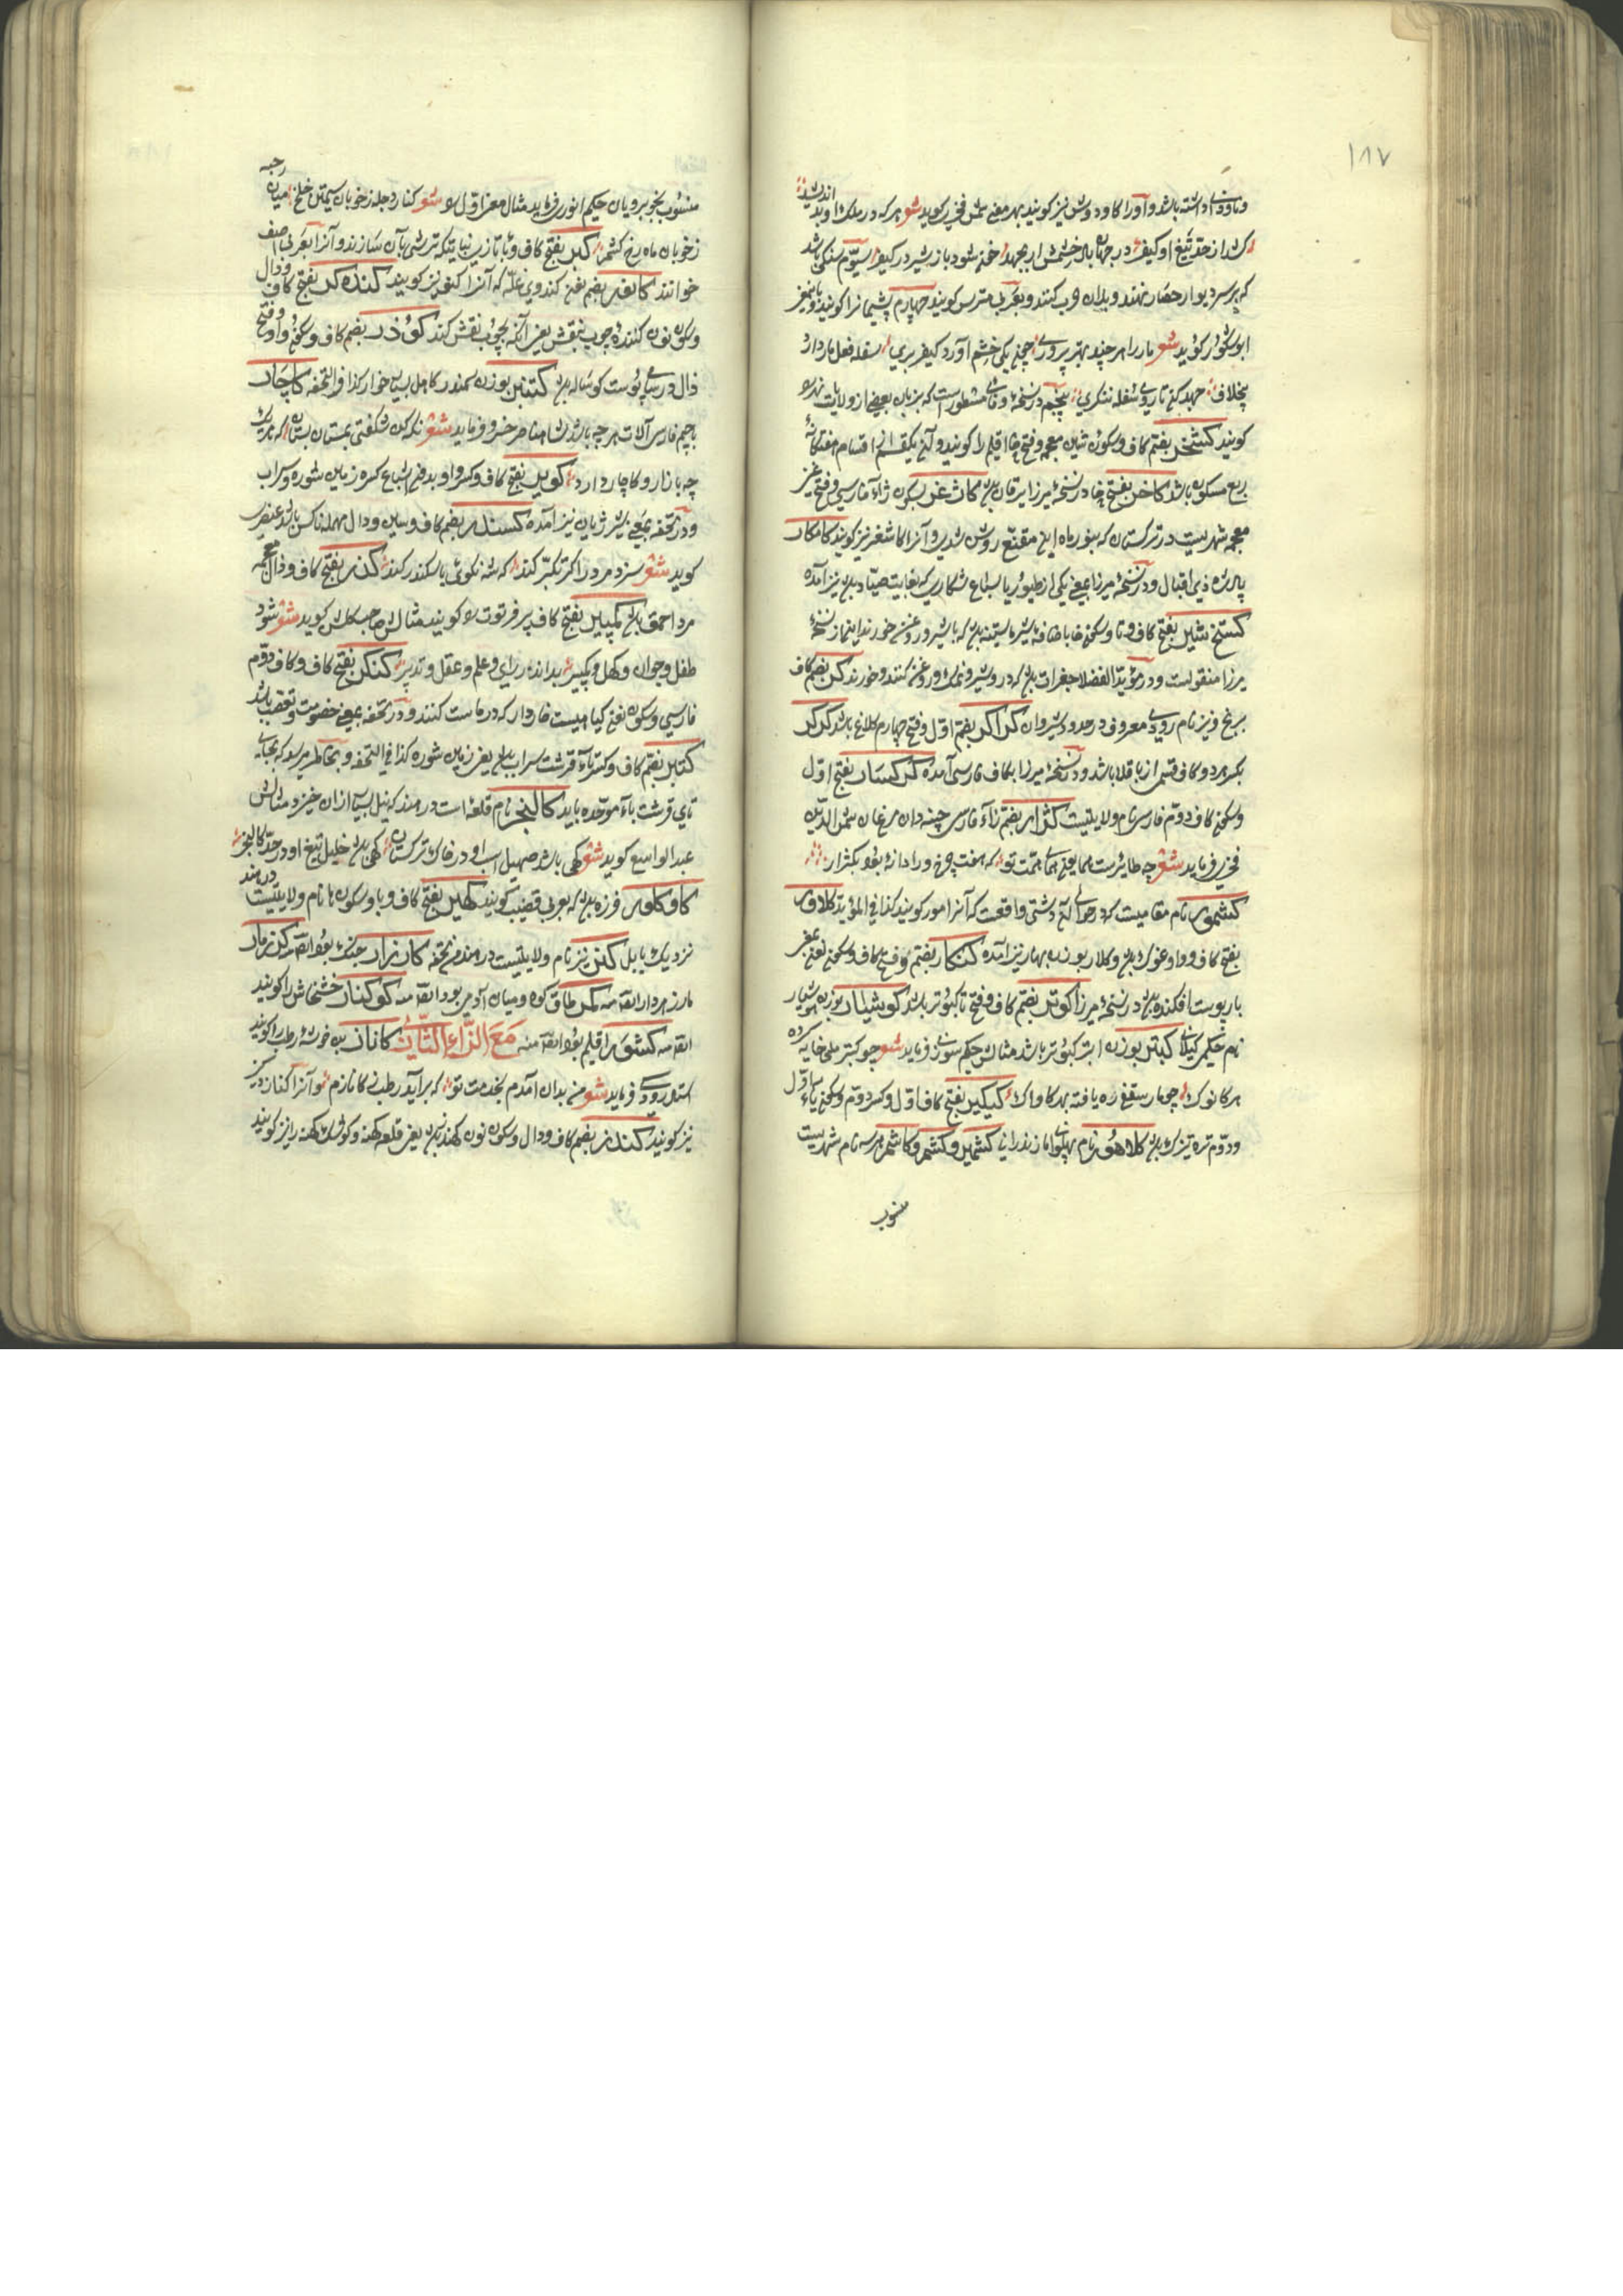 ۱۸۷
و ماوذی داشته باشد و آورا کاودوش نیز کویند بهر معنی شمس فخری کوید شعر هر که در ملک او بد اندیشید
کشد از حد تیغ او کیفر در جهان خشمش ار بجهد خفه شود باز شیر در کیفر سیّوم سنکی باشد
که بر سر دیوار حصار نهند و بدان حرب کنند و بعربی مترس کویند چهارم پشیمانرا کویند
ابو شکور کوید شعر مار را هر چند بهتر پروری چونکه یکی خشم آورد کیفر بری سفله فعل مار دارد
بیخلاف جهد کن تا روی سفله ننکری پنجم در نسخهٔ وفائی مسطور است که بزبان بعضی از ولایات
کویند کشخر بفتح کاف و سکون شین معجمه و فتح خا اقلیم را کویند و آن یکقسم از اقسام هفتکانهٔ
ربع مسکون باشد کاخر بفتح خا در نسخهٔ میرزا یرقان باشد کاشغر بسکون زاء فارسی و فتح غین
معجمه شهریست در ترکستان که بنور ماه ابن مقنع روشن شدی و آنرا کاشغر نیز کویند کامکار
پادشاه ذی اقبال و در نسخهٔ میرزا بمعنی یکی از طیور یا سباع شکاری که بغایت صیّاد باشد نیز آمده
کستخ شیر بفتح کاف و تا و سکون خا باضافه شیر ماستینه باشد که با شیر و روغن خورند اینها از نسخهٔ
میرزا منقولست و در مؤید الفضلا جغرات باشد که درو شیر و نمک و روغن کنند و خورند کر بضم کاف
برنج و نیز نام رودی معروف در حدود شیروان کراکر بفتح اول و فتح چهارم کلاغ باشد کرکر
بکسر هر دو کاف قسمی از باقلا باشد و در نسخهٔ میرزا بکاف فارسی آمده کرکسار بفتح اوّل
و سکون کاف دوّم فارسی نام ولایتیست کژار بضم زاء فارسی چینه دان مرغان شمس الدین
فخری فرماید شعر چه طایرست همای همّت تو که هفت چرخ ورا دانه بود بکژار
کشمور نام مقامیست که در حوالی آن دشتی واقعست که آنرا مور کویند کذا فی المؤید کلاور
بفتح کاف و واو غوک باشد و کلار بوزن بهار نیز آمده کنکار بضم و فتح کاف و سکون نون یعنی
مار پوست افکنده باشد در نسخهٔ میرزا کوتر بضم کاف و فتح تا کبوتر باشد کوشیار بوزن هوشیار
نام حکیمی کیلانی کبتر بوزن ابتر کبوتر باشد مثالش حکیم سوزنی فرماید شعر چو کبتر ملی خایه کرده
بهر کانوک چو مار سقغ ره یافته بهر کاواک کیکیر بفتح کاف اوّل و کسر دوّم و سکون یاء اوّل
و دوّم تره تیزک باشد کلاهور نام پهلوان مازندرانی کشمیر و کشمر و کاشمر هر سه نام شهریست
منسوب
منسوب بخوبرویان حکیم انوری فرماید مثال معنی اوّل شعر کنار دجله ز خوبان سیمتن خلخ میان رحبه
ز خوبان ماه رخ کشمر کبر بفتح کاف و با تازی نباتیکه ترشی بآن سازند و آنرا بعربی اصف
خوانند کانور بضم نون کندوی غلّه که آنرا کنور نیز کویند کنده کر بفتح کاف و دال
و سکون نون کننده چوب بنقش یعنی آنکه بچوب نقش کند کوذر بضم کاف و سکون واو و فتح
ذال و رسای پوست کوساله باشد کنتبر بوزن سمندر کاهل بسیار خوار کذا فی التحفه کاچار
بجیم فارسی آلات هر چه باشد مثالش امیر خسرو فرماید شعر نکه کن شکفتی بمستان بستان که هر یک
چه بازار و کاچار دارد کویر بفتح کاف و کسر واو بدون اشباع کسره زمین شوره و سراب
و در تحفه بمعنی شیر ژیان نیز آمده کسندر بضم کاف و سین و دال مهمله ناکس باشد عنصری
کوید شعر سزد مرد را کر تکبّر کند که شه نکوئی با کسندر کند کذر بفتح کاف و ذال معجمه
مرد احمق باشد کمپیر بفتح کاف پیر فرتوت را کویند مثالش صاحب کلشن کوید شعر شود
طفل و جوان و کهل و کمپیر بداند رای و علم و عقل و تدبیر کنکر بفتح کاف و کاف دوّم
فارسی و سکون نون کیاهیست خاردار که در ماست کنند و در تحفه بمعنی خصومت و تعصب باشد
کتیر بضم کاف و کسر تاء قرشت سراب باشد یعنی زمین شوره کذا فی التحفه و بخاطر میرسد که بجای
تای قرشت باء موحّده باید کالنجر نام قلعهٔ است در هند که نیل بسیار از آن خیزد مثالش
عبد الواسع کوید شعر کهی باشد صهیل اسب او در خاک ترکستان کهی باشد خلیل تیغ او در حدّ کالنجر
کاوکلور فرزه باشد که بعربی قضیب کویند کهیر بفتح کاف و با و سکون ها نام ولایتیست در هند
نزدیک ببابل کنر نیز نام ولایتیست در هند من تحفه کارزار جنک بود ایضا منه کرزمار
مار زهردار ایضا منه کمر طاق کوه و میان آدمی بود ایضا منه کوکنار خشخاش را کویند
ایضا منه کشور اقلیم بود ایضا منه مَعَ الزّاءِ التّازی کاناز بن خوشهٔ رطب را کویند
استاد رودکی فرماید شعر من بدان آمدم بخدمت تو که برآید رطب ز کانازم و آنرا کناز نیز
نیز کویند کندز بضم کاف و دال و سکون نون کهندز باشد یعنی قلعه کهنه و کوشک کهنه را نیز کویند